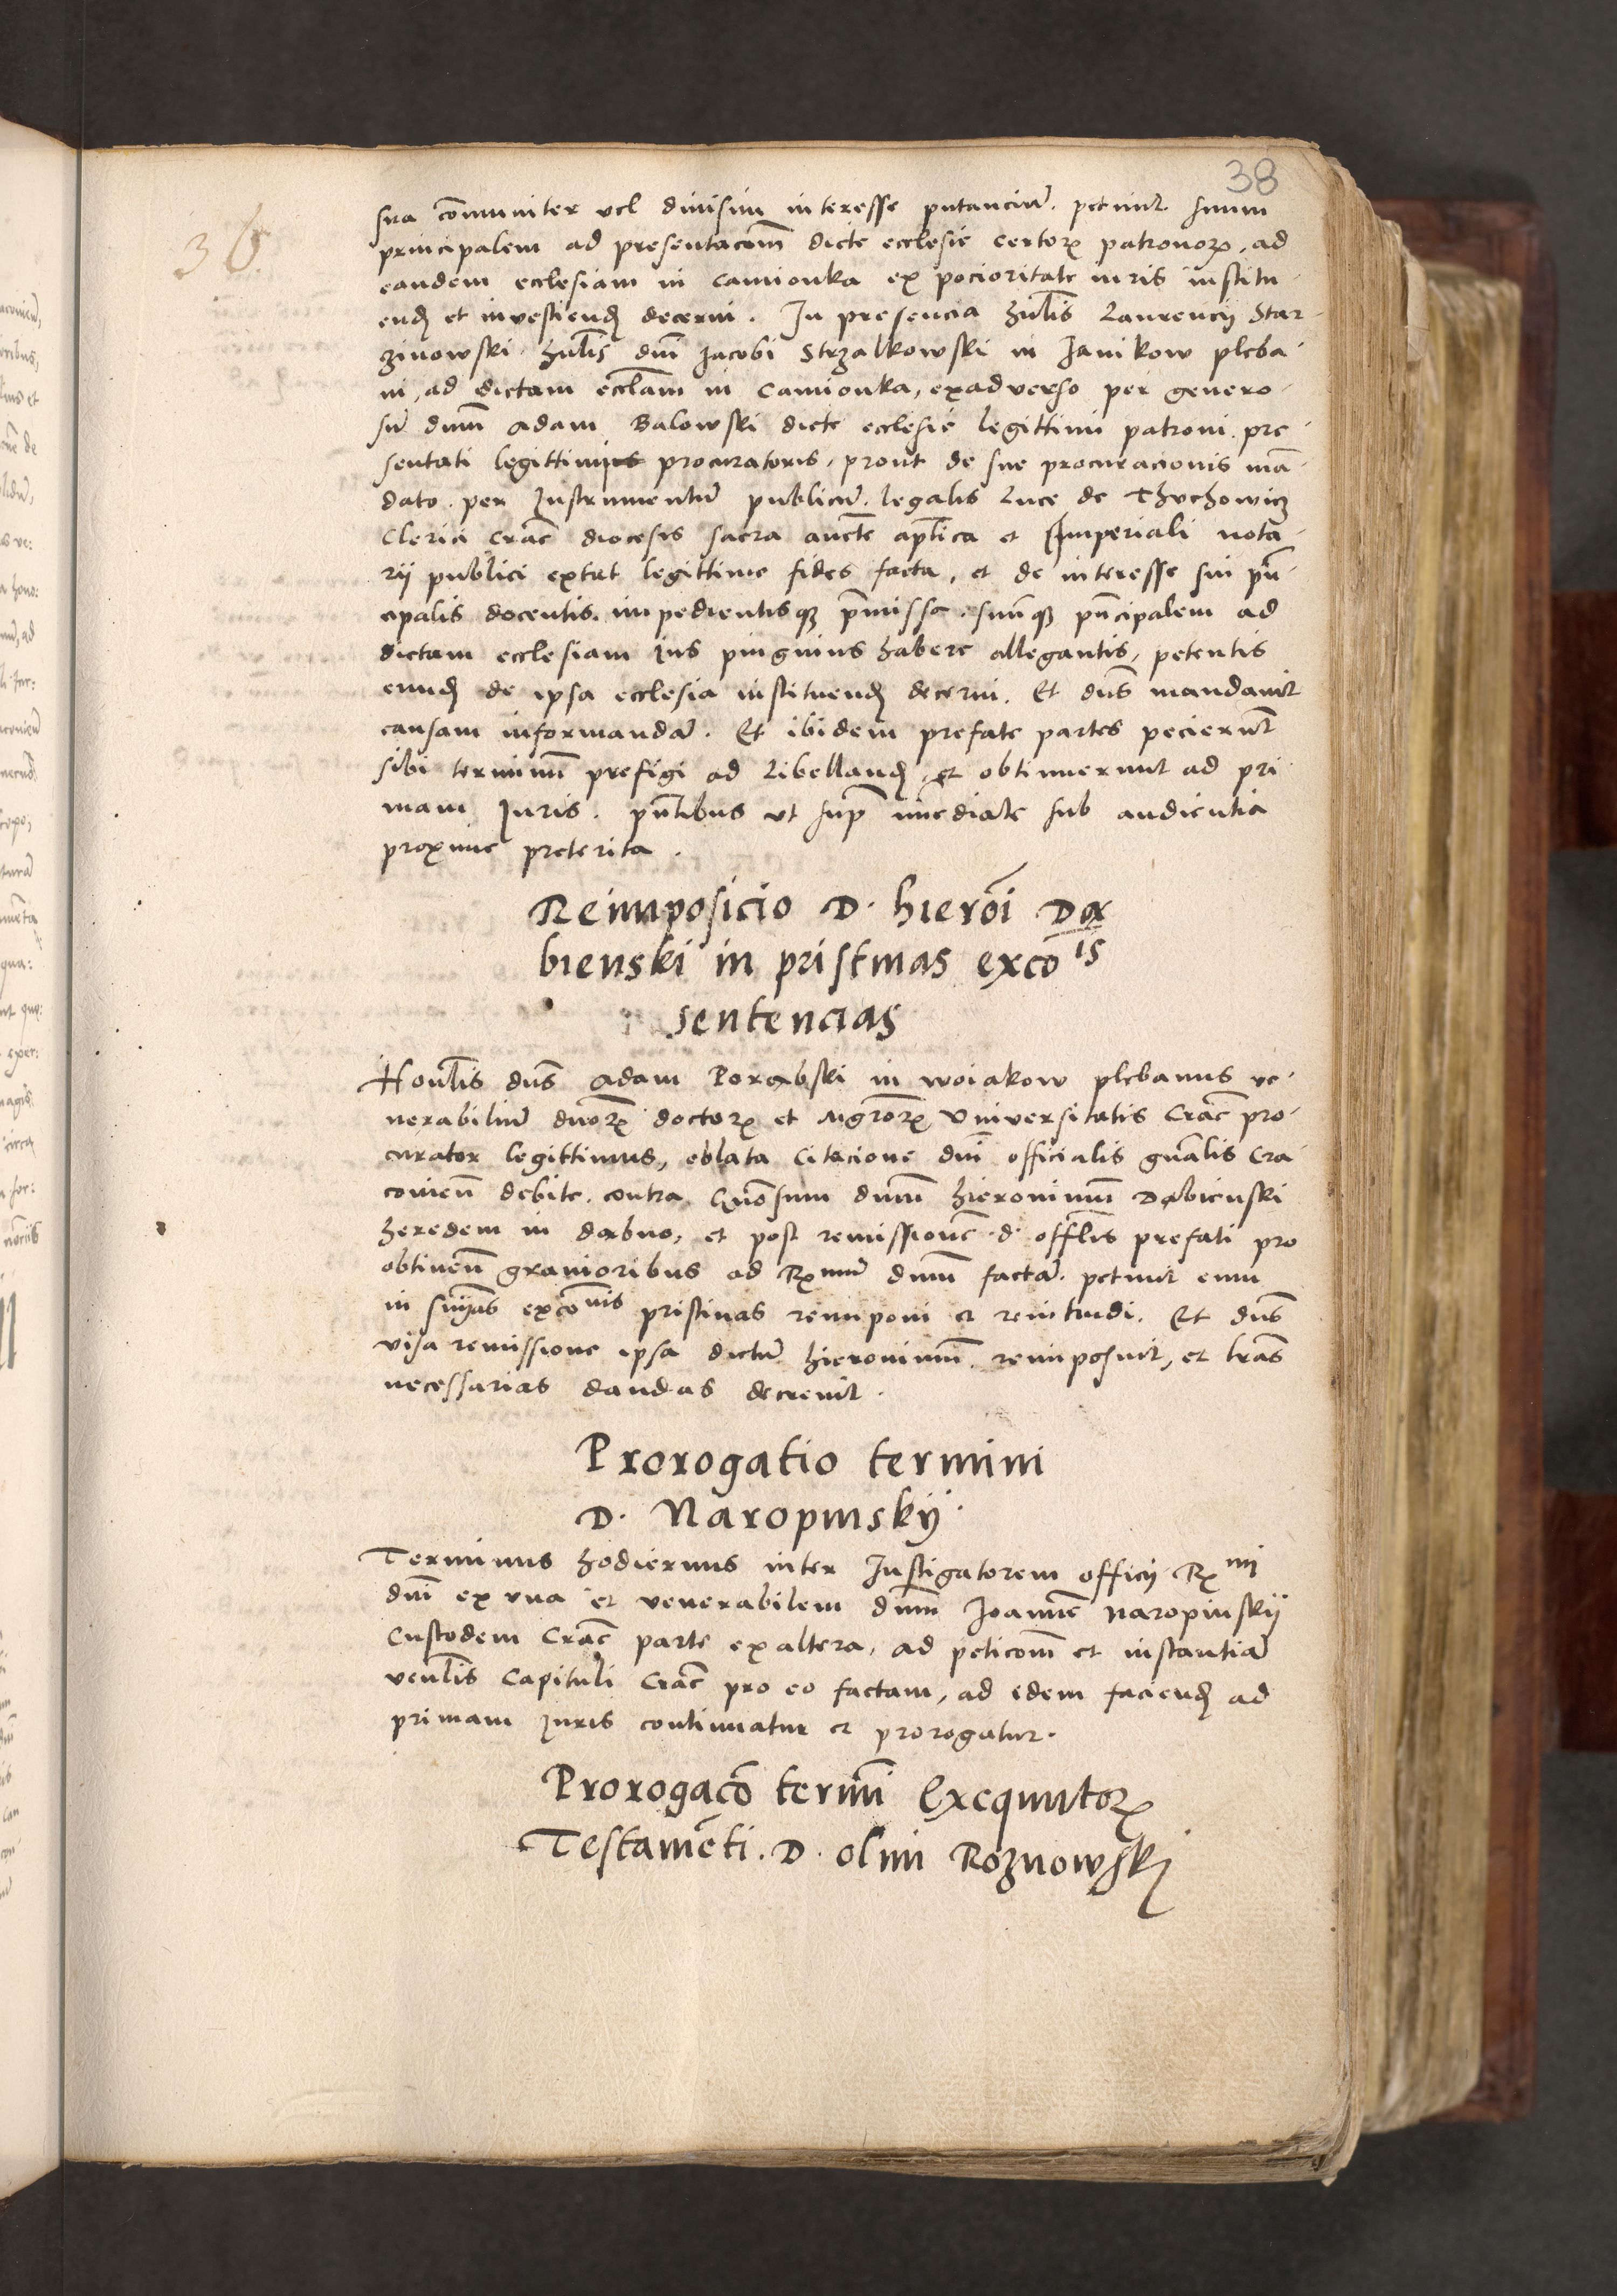 38
36.
sua cõmuniter vel divisim interesse putanciũ. petiuit suum
principalem ad presentacõm dicte ecclesie certorꝝ patronorꝝ, ad
eandem ecclesiam in Camionka ex pocioritate iuris institu-
endꝭ et investiendꝭ decerni. In presencia hũlis Laurencij Star-
zinowski hũlis dnĩ Jacobi Strzalkowski in Janikow pleba-
ni, ad dictam ecclãm in Camionka, exadverso per genero-
sũ dnũm Adam Balowski dicte ecclesie legittimi patroni pre-
sentati legittimi procuratoris, prout de sue procuracionis mã-
dato per Instrumentũ publicũ legalis Luce de Thuchowicz
Clerici Crac̃ diocesis sacra auctẽ aplĩca et Imperiali nota-
rij publici extat legittime fides facta, et de interesse sui prĩn-
cipalis docentis. impedientisqꝫ p̃missa. suũqꝫ prĩncipalem ad
dictam ecclesiam Jus pinguius habere allegantis, petentis
eundꝭ de ipsa ecclesia instituendꝭ decerni. Et dñs mandauit
causam informandã. Et ibidem prefate partes pecierũt
sibi terminũ prefigi ad Libellandꝭ, et obtinuerunt ad pri
mam Juris. pñtibus vt sup̃ im̃ediate sub audientia
proxime preterita.
Reimposicio D. hierõi Dą
bienski in pristinas excõis
sentencias
Honlĩs dñs Adam Porąbski in woiakow plebanus ve-
nerabiliũ dñorꝝ doctorꝝ et Mgr̃orꝝ Vniversitatis Crac̃ pro-
curator legittimus, oblata Citacione dnĩ officialis gñalis Cra
couieñ debite. contra Gñosum dnũm hieronimũ Dąbienski
heredem in dąbno, et post remissionẽ d. offlĩs prefati pro
obtineñ grauioribus ad Rxmũ dnũm factã. petiuit eum
in sniãs excõnis pristinas reimponi et reintrudi. Et dñs
visa remissione ipsa dictũ hieronimũ reimposuit, et lrãs
necessarias dandas decreuit.
Prorogatio termini
D. Naropinskij.
Terminus hodiernus inter Instigatorem officij Rxmi
dnĩ ex vna et venerabilem dnũm Joannẽ Naropinskij
Custodem Crac̃ parte ex altera, ad peticõm et instantiã
venlĩs Capituli Crac̃ pro eo factam, ad idem faciendꝭ ad
primam Juris continuatur et prorogatur.
Prorogacõ termĩni Exequutorꝝ
Testamẽti. D. olim Roznowski